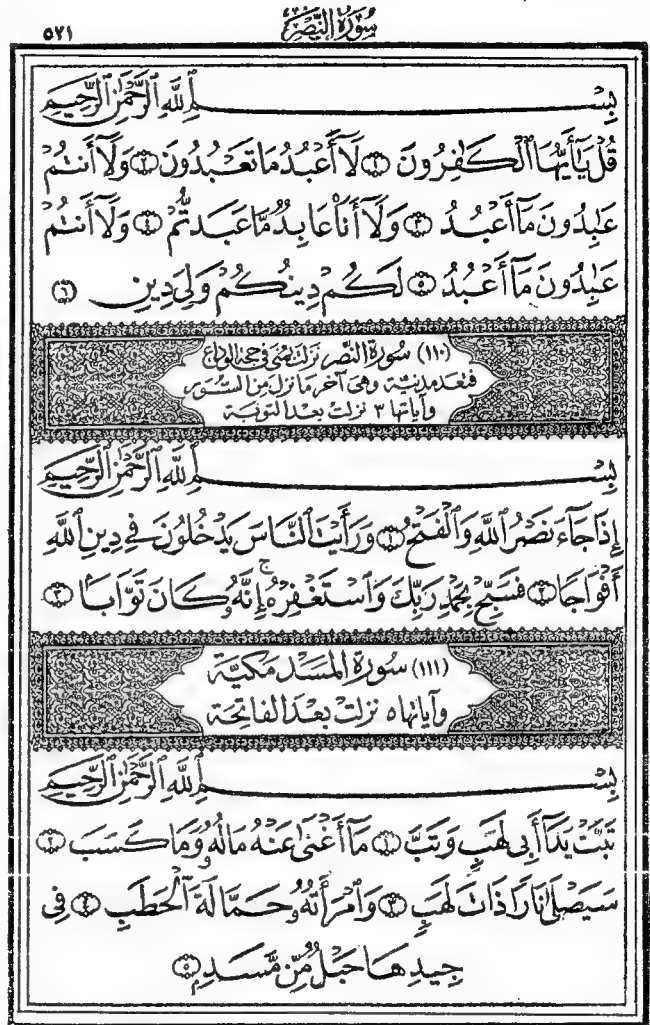 سُورَةُ النَّصْرِ
٥٢١
بِسْمِ ٱللَّهِ ٱلرَّحْمَٰنِ ٱلرَّحِيمِ
قُلْ يَٰٓأَيُّهَا ٱلْكَٰفِرُونَ ۝١ لَآ أَعْبُدُ مَا تَعْبُدُونَ ۝٢ وَلَآ أَنتُمْ
عَٰبِدُونَ مَآ أَعْبُدُ ۝٣ وَلَآ أَنَا۠ عَابِدٌ مَّا عَبَدتُّمْ ۝٤ وَلَآ أَنتُمْ
عَٰبِدُونَ مَآ أَعْبُدُ ۝٥ لَكُمْ دِينُكُمْ وَلِيَ دِينِ ۝٦
(١١٠) سُورَةُ النَّصْرِ نَزَلَتْ بِمِنًى فِي حَجَّةِ الْوَدَاعِ
فَتُعَدُّ مَدَنِيَّة وَهِيَ آخِرُ مَا نَزَلَ مِنَ السُّوَرِ
وَآيَاتُهَا ٣ نَزَلَتْ بَعْدَ التَّوْبَةِ
بِسْمِ ٱللَّهِ ٱلرَّحْمَٰنِ ٱلرَّحِيمِ
إِذَا جَآءَ نَصْرُ ٱللَّهِ وَٱلْفَتْحُ ۝١ وَرَأَيْتَ ٱلنَّاسَ يَدْخُلُونَ فِي دِينِ ٱللَّهِ
أَفْوَاجًا ۝٢ فَسَبِّحْ بِحَمْدِ رَبِّكَ وَٱسْتَغْفِرْهُ ۚ إِنَّهُۥ كَانَ تَوَّابًۢا ۝٣
(١١١) سُورَةُ الْمَسَدِ مَكِّيَّة
وَآيَاتُهَا ٥ نَزَلَتْ بَعْدَ الْفَاتِحَةِ
بِسْمِ ٱللَّهِ ٱلرَّحْمَٰنِ ٱلرَّحِيمِ
تَبَّتْ يَدَآ أَبِي لَهَبٍ وَتَبَّ ۝١ مَآ أَغْنَىٰ عَنْهُ مَالُهُۥ وَمَا كَسَبَ ۝٢
سَيَصْلَىٰ نَارًا ذَاتَ لَهَبٍ ۝٣ وَٱمْرَأَتُهُۥ حَمَّالَةَ ٱلْحَطَبِ ۝٤ فِي
جِيدِهَا حَبْلٌ مِّن مَّسَدٍۭ ۝٥